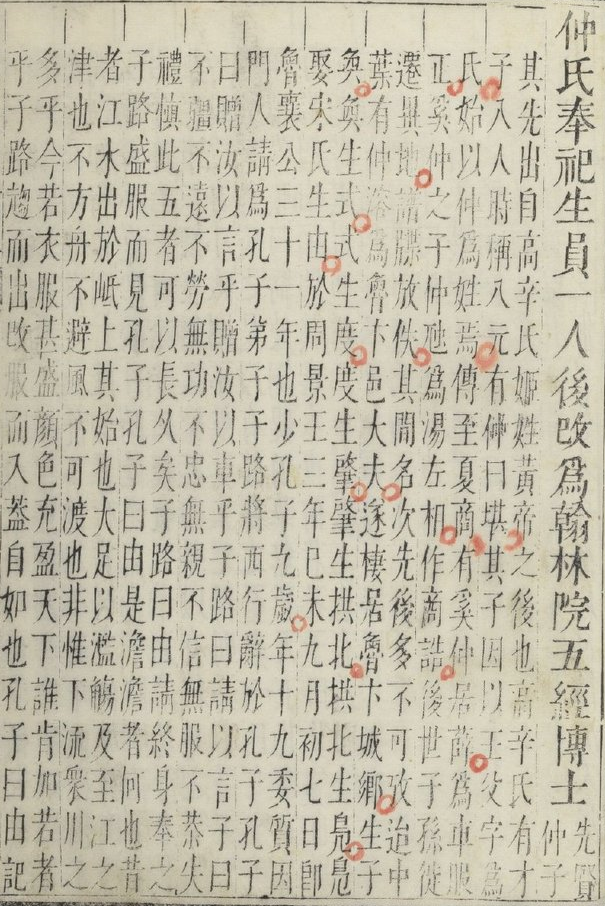 仲氏奉祀生員一人後改爲翰林院五經博士
先賢
仲子
其先出自高辛氏姬姓黃帝之後也高辛氏有才
子八人時稱八元有仲曰堪其子因以王父字爲
氏始以仲爲姓焉傳至夏商有奚仲居薛爲車服
正奚仲之子仲虺爲湯左相作商誥後世子孫徙
遷異地譜牒放佚其間名次先後多不可攷迨中
葉有仲溶爲魯卞邑大夫遂棲居魯卞城鄉生子
奐奐生式式生度度生肇肇生拱北拱北生鳧鳧
娶宋氏生由於周景王三年巳未九月初七日卽
魯襄公三十一年也少孔子九歲年十九委質因
門人請爲孔子弟子子路將西行辭於孔子孔子
曰贈汝以言乎贈汝以車乎子路曰請以言子曰
不彊不遠不勞無功不忠無親不信無服不恭失
禮慎此五者可以長久矣子路曰由請終身奉之
子路盛服而見孔子孔子曰由是澹澹者何也昔
者江水出於岷上其始也大足以濫觴及至江之
津也不方舟不避風不可渡也非惟下流衆川之
多乎今若衣服甚盛顏色充盈天下誰肯加若者
乎子路趨而出改服而入蓋自如也孔子曰由記